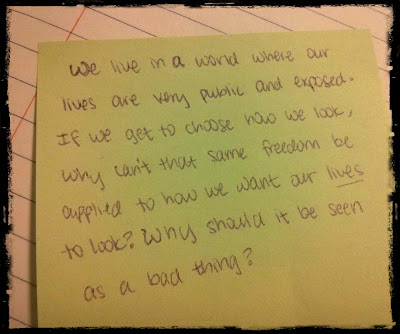 we live in a world where our
lives are very public and exposed.
If we get to choose how we look,
why can't that same freedom be
applied to how we want our lives
to look? Why should it be seen
as a bad thing?